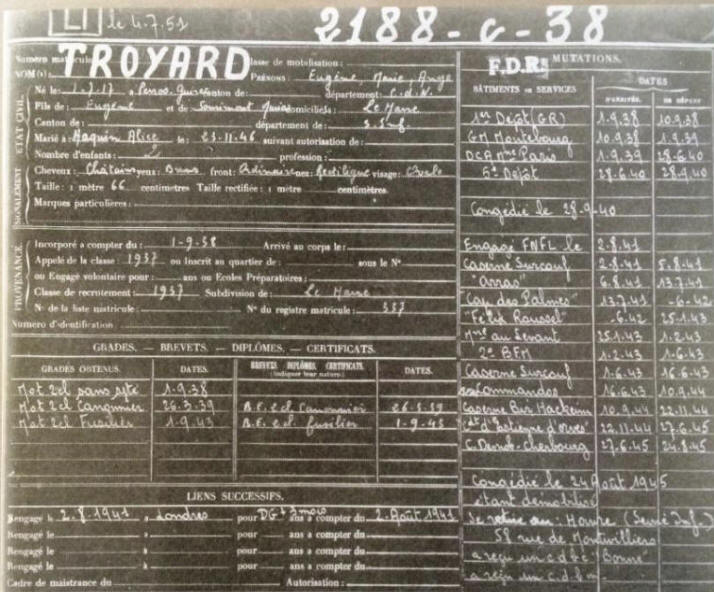 LI le 4.7.51
2188-C-38
Numéro matricule
TROYARD
Classe de mobilisation :
NOM(s) :
Prénoms : Eugène, Marie, Ange
Né le : 1.7.17 à Perros-Guirec canton de : département : C.d.N.
Fils de : Eugène et de domicilié : Le Havre
Canton de : département de : S. Inf.
Marié à : Haquin Alice le : 23-11-46 suivant autorisation de :
Nombre d'enfants : 2 profession :
Cheveux : Châtains yeux : Bruns front : Ordinaire nez : Rectiligne visage : Ovale
Taille : 1 mètre 66 centimètres Taille rectifiée : 1 mètre centimètres
Marques particulières :
ÉTAT CIVIL
SIGNALEMENT
PROVENANCE.
Incorporé à compter du : 1-9-38 Arrivé au corps le :
Appelé de la classe : 1937 ou Inscrit au quartier de : sous le N°
ou Engagé volontaire pour : ans ou Ecoles Préparatoires :
Classe de recrutement : 1937 Subdivision de : Le Havre
N° de la liste matricule : N° du registre matricule : 337
Numéro d'identification
GRADES. — BREVETS. — DIPLÔMES. — CERTIFICATS.
GRADES OBTENUS. DATES. BREVETS, DIPLÔMES, CERTIFICATS. (Indiquer leur nature.) DATES.
Mot 2cl sans spté 1-9-38
Mot 2cl Canonnier 26-3-39 B.E. 2cl Canonnier 26-3-39
Mat 2cl Fusilier 1-9-43 B.E. 2cl fusilier 1-9-43
LIENS SUCCESSIFS.
Rengagé le 2.8.1941 à Londres pour DG + 3 mois ans à compter du 2 Août 1941
Rengagé le à pour ans à compter du
Rengagé le à pour ans à compter du
Rengagé le à pour ans à compter du
Cadre de maistrance du Autorisation :
F.D.R. MUTATIONS.
BÂTIMENTS ou SERVICES DATES
D'ARRIVÉE. DE DÉPART
1er Dépôt (GR) 1.9.38 10.9.38
GM Montebourg 10.9.38 1.9.39
DCA Mne Paris 1.9.39 28.6.40
5e Dépôt 28.6.40 28.9.40
Congédié le 28-9-40
Engagé FNFL le 2.8.41
Caserne Surcouf 2.8.41 5.8.41
"Arras" 6.8.41 13.7.41
"Cap des Palmes" 13.7.41 -6-42
"Félix Roussel" -6.42 25.1.43
Mne au Levant 25.1.43 1.2.43
2e BFM 1-2.43 1.6.43
Caserne Surcouf 1.6.43 16.6.43
Commandos 16.6.43 10.9.44
Caserne Bir Hackeim 10.9.44 22.11.44
d'Estienne d'Orves 22.11.44 27.6.45
C. Demob. Cherbourg 27.6.45 24.8.45
Congédié le 24 Août 1945
étant démobilisé
Se retire au : Havre (Seine Inf.)
58 rue de Montivilliers
a reçu un c.d.b.c "Bonne"
a reçu un c.d.b.m.